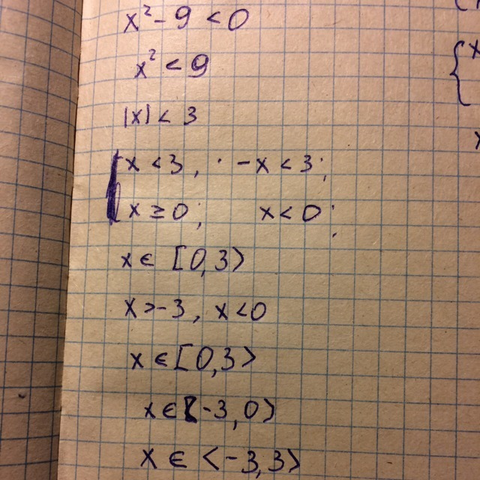 x² - 9 < 0
x² < 9
|x| < 3
x < 3, · -x < 3;
x ≥ 0; x < 0;
x ∈ [0,3>
x > -3, x < 0
x ∈ [0,3>
x ∈ < -3,0>
x ∈ < -3,3>